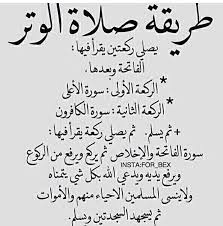 طريقة صلاة الوتر
يصلي ركعتين يقرأ فيها:
الفاتحة وبعدها.
*الركعة الأولى: سورة الأعلى
*الركعة الثانية: سورة الكافرون
+ ثم يسلم. ثم يصلي ركعة يقرأ فيها:
سورة الفاتحة والإخلاص ثم يركع ويرفع من الركوع
INSTA:FOR_BEX
ويرفع يديه ويدعي الله بكل شي يتمناه
ولاينسى المسلمين الاحياء منهم والأموات
ثم يسجهد السجدتين ويسلم.